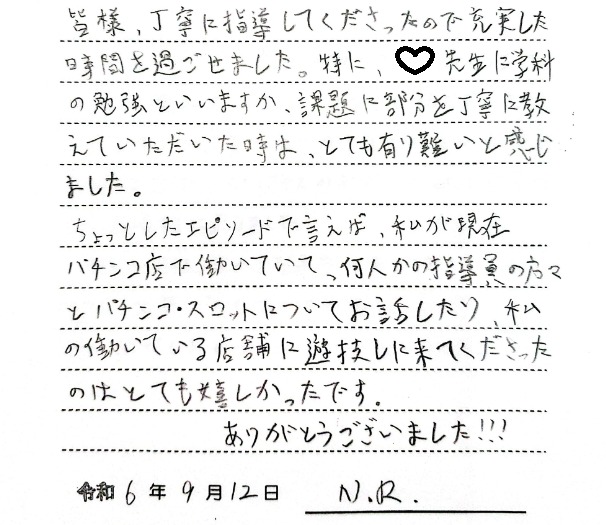 皆様、丁寧に指導してくださったので充実した
時間を過ごせました。特に、♡先生に学科
の勉強といいますか、課題に部分を丁寧に教
えていただいた時は、とても有り難いと感じ
ました。
ちょっとしたエピソードで言えば、私が現在
パチンコ店で働いていて、何人かの指導員の方々
とパチンコ・スロットについてお話したり、私
の働いている店舗に遊技しに来てくださった
のはとても嬉しかったです。
ありがとうございました!!!
令和6年9月12日 N.R.